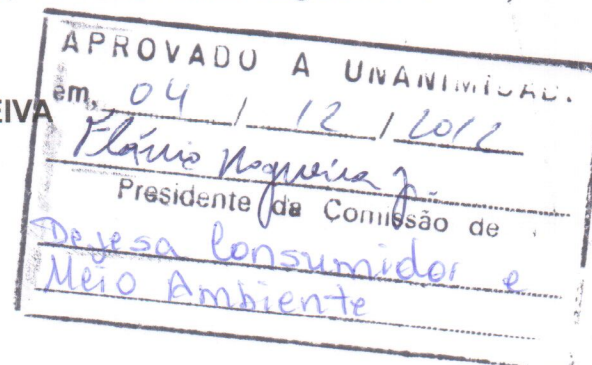 APROVADO A UNANIMIDAD.
EIVA
em, 04 / 12 / 2012
Flávio Nogueira J.
Presidente da Comissão de
Defesa Consumidor e
Meio Ambiente